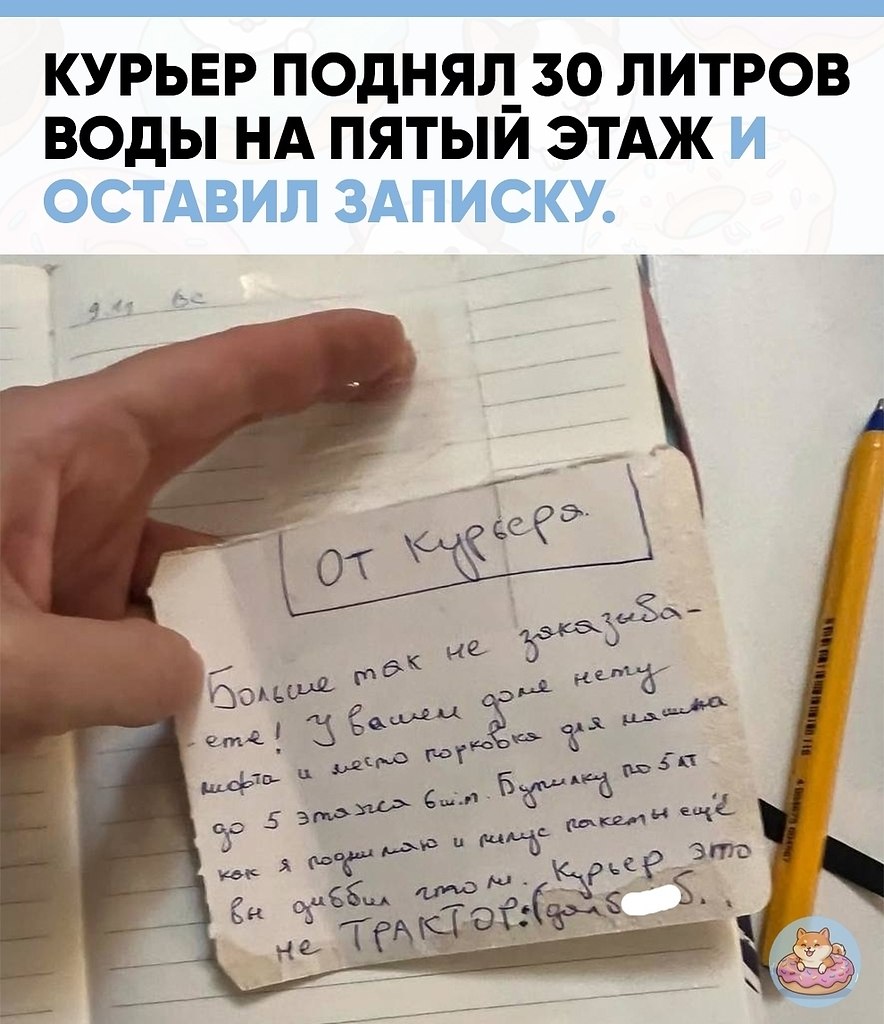 КУРЬЕР ПОДНЯЛ 30 ЛИТРОВ
ВОДЫ НА ПЯТЫЙ ЭТАЖ И
ОСТАВИЛ ЗАПИСКУ.
9.11 вс
От Курьера
Больше так не заказыва-
-ете! У вашем доме нету
лифта и место порковка для машина
до 5 этажса 6шт. Бутилку по 5 лт
как я поднимаю и плюс пакеты ещё
Вы
не ТРАКТОР:(
Курьер это